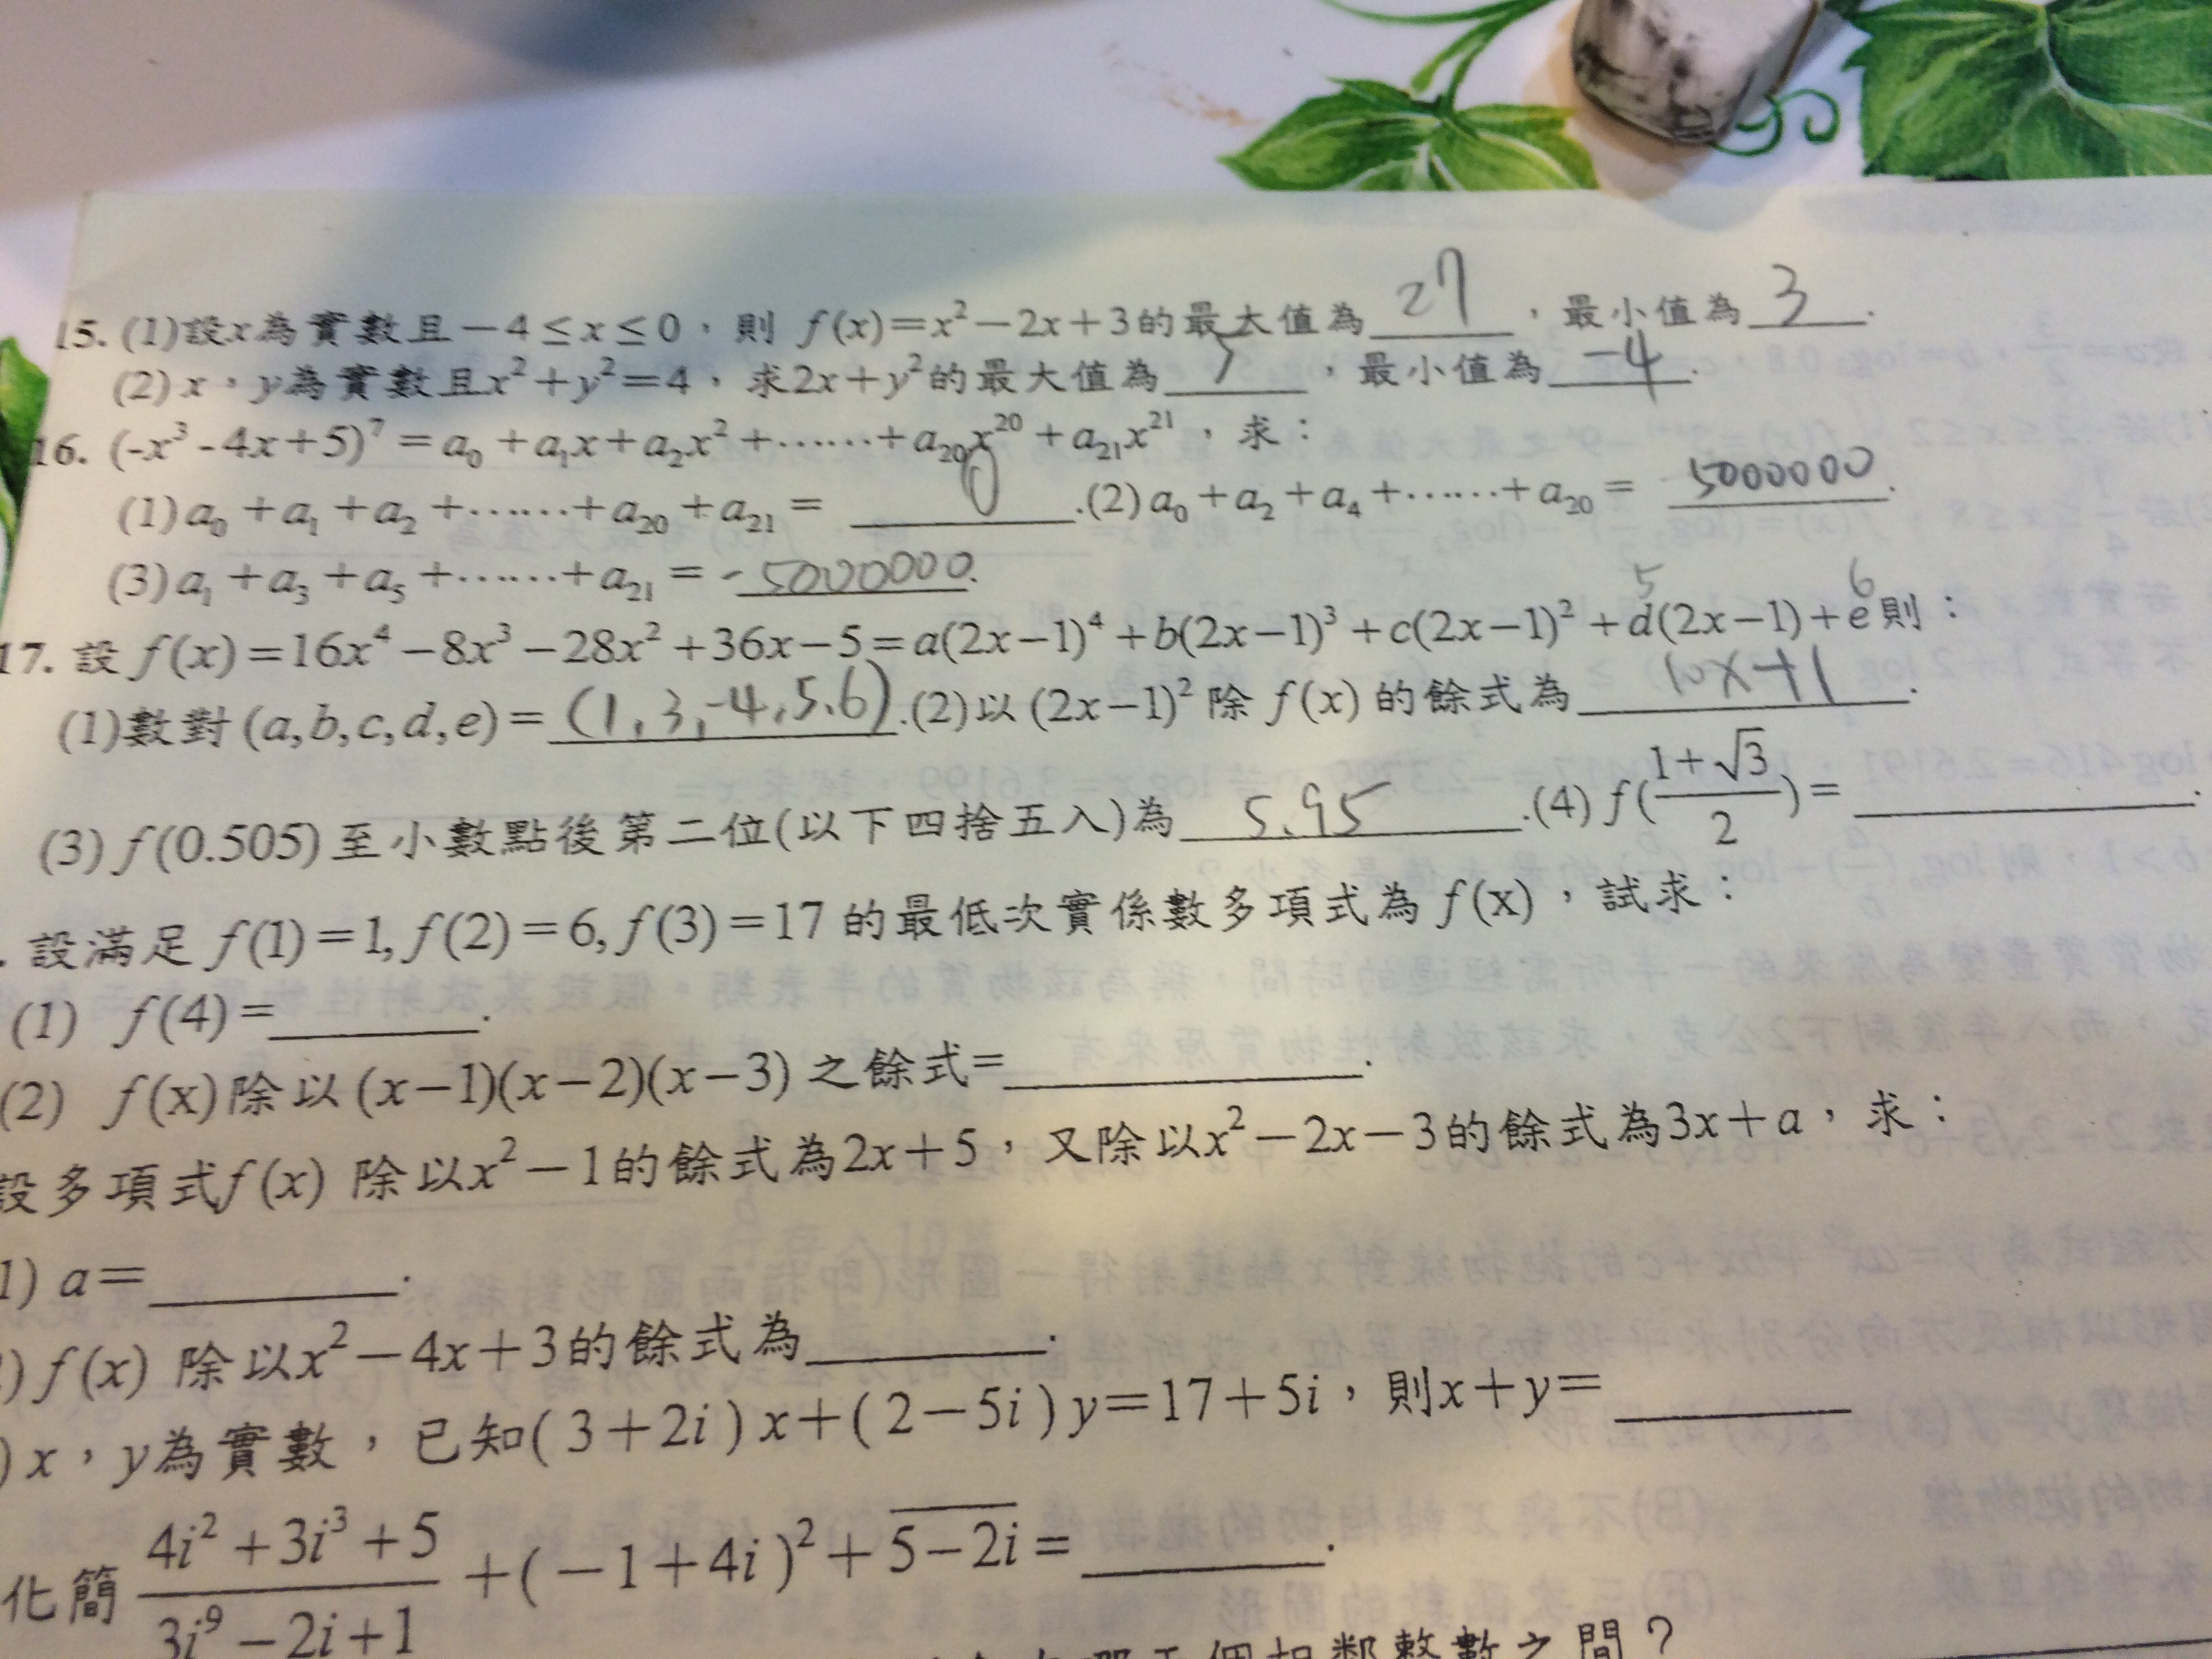 15. (1)設x為實數且-4≤x≤0，則 f(x)=x²-2x+3的最大值為 27 ，最小值為 3 .
(2) x，y為實數且x²+y²=4，求2x+y²的最大值為 5 ，最小值為 -4 .
16. (-x³-4x+5)⁷ = a₀+a₁x+a₂x²+……+a₂₀x²⁰+a₂₁x²¹，求：
(1)a₀+a₁+a₂+……+a₂₀+a₂₁= 0 .(2)a₀+a₂+a₄+……+a₂₀= 5000000 .
(3)a₁+a₃+a₅+……+a₂₁= -5000000.
5 6
17. 設 f(x)=16x⁴-8x³-28x²+36x-5=a(2x-1)⁴+b(2x-1)³+c(2x-1)²+d(2x-1)+e則：
(1)數對(a,b,c,d,e)= (1,3,-4,5,6) .(2)以(2x-1)²除f(x)的餘式為 10x+1 .
(3) f(0.505)至小數點後第二位(以下四捨五入)為 5.95 .(4) f((1+√3)/2)= .
. 設滿足 f(1)=1, f(2)=6, f(3)=17 的最低次實係數多項式為 f(x)，試求：
(1) f(4)= .
(2) f(x)除以(x-1)(x-2)(x-3)之餘式= .
設多項式f(x) 除以x²-1的餘式為2x+5，又除以x²-2x-3的餘式為3x+a，求：
1) a= .
) f(x) 除以x²-4x+3的餘式為 .
) x，y為實數，已知(3+2i)x+(2-5i)y=17+5i，則x+y=
化簡 (4i²+3i³+5)/(3i⁹-2i+1) +(-1+4i)²+\overline{5-2i}= .
個相鄰整數之間？